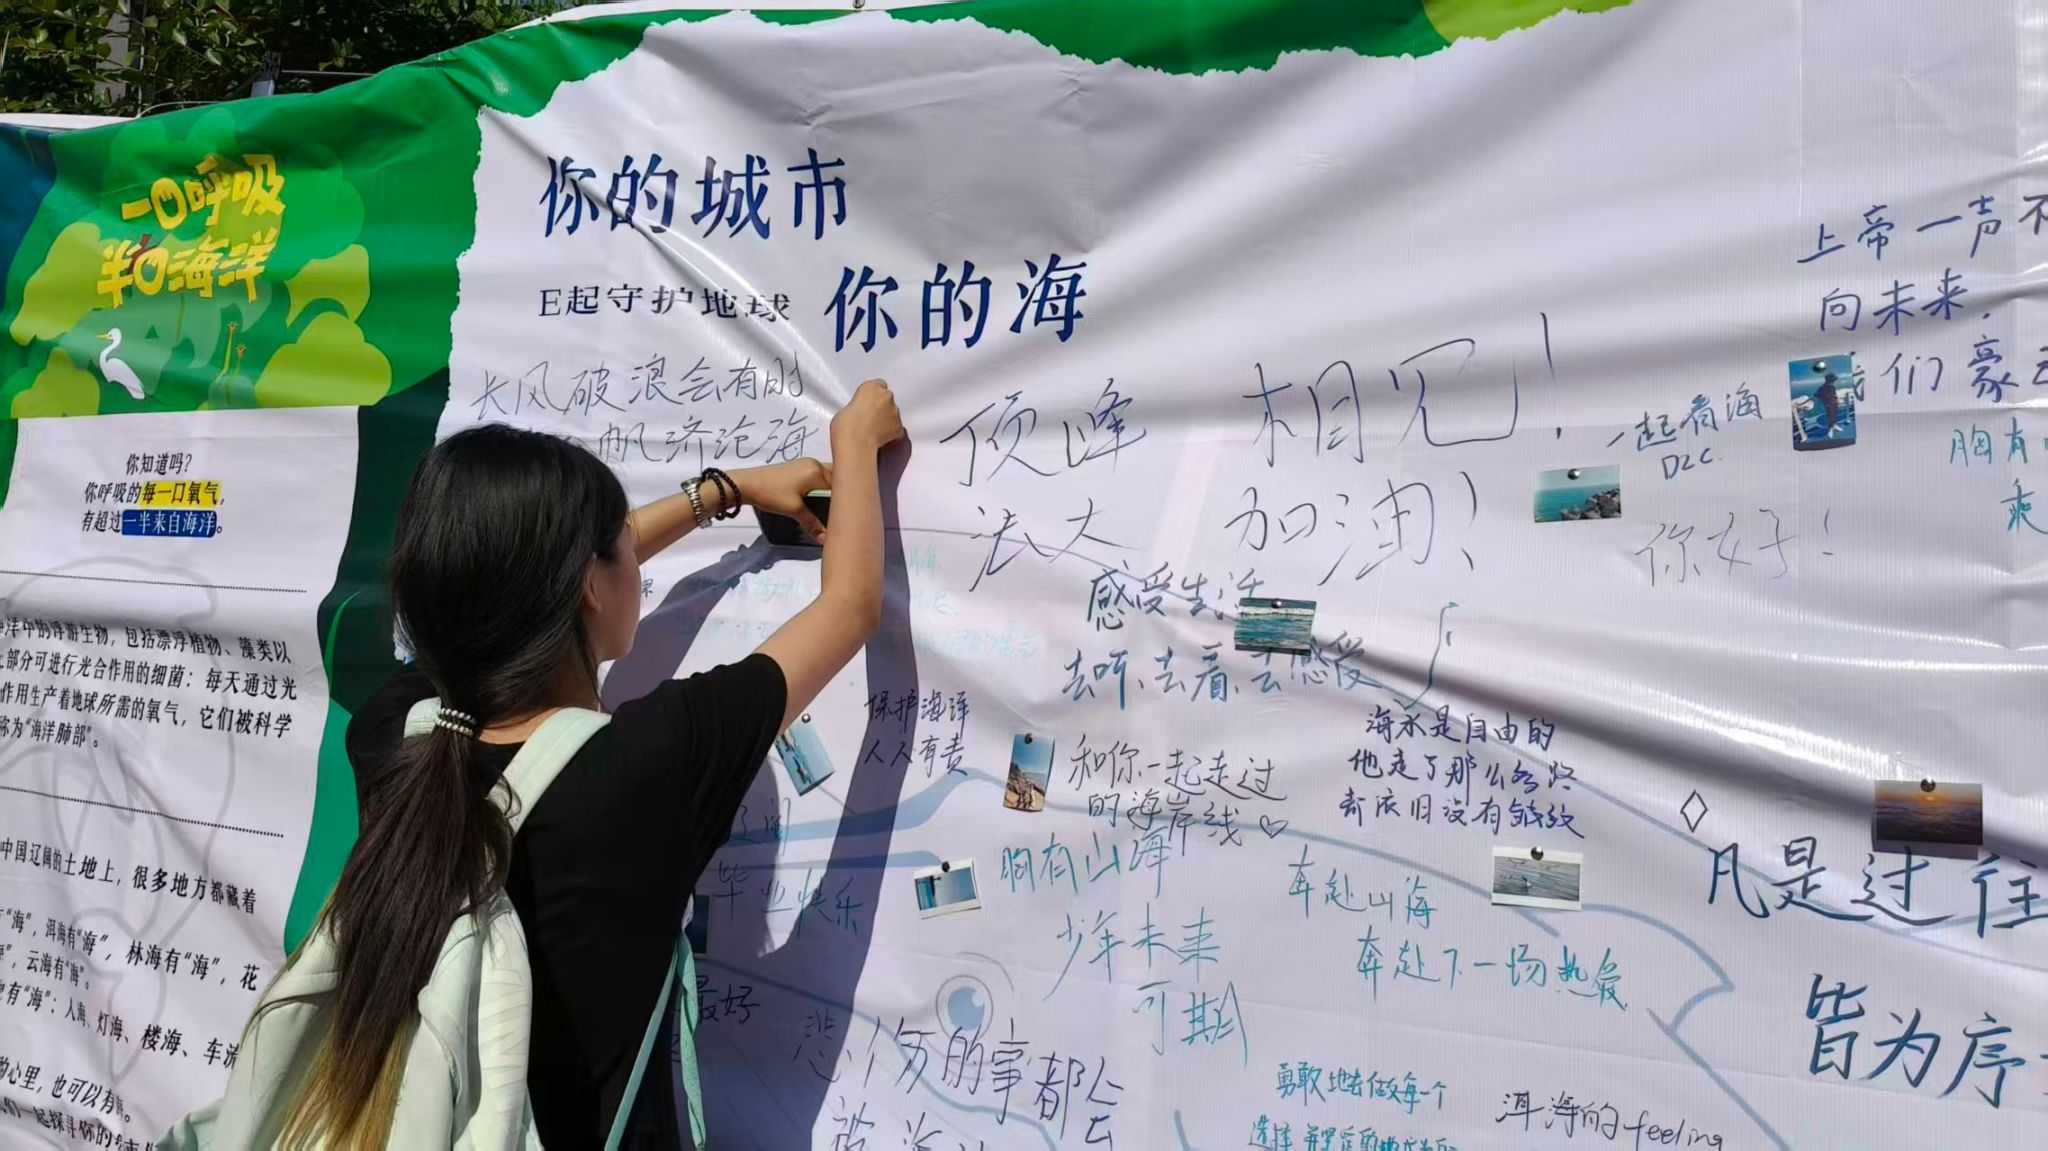 一口呼吸
半口海洋
你知道吗?
你呼吸的每一口氧气,
有超过一半来自海洋。
洋中的浮游生物,包括漂浮植物、藻类以
部分可进行光合作用的细菌:每天通过光
作用生产着地球所需的氧气,它们被科学
称为“海洋肺部”。
中国辽阔的土地上,很多地方都藏着
“海”,洱海有“海”,林海有“海”,花
”,云海有“海”。
有“海”:人海、灯海、楼海、车流
心里,也可以有
一起探寻你的
你的城市
你的海
E起守护地球
长风破浪会有时
帆济沧海
顶峰 相见!
法大 加油!
上帝一声不
向未来,
们豪
一起看海
DZC.
你好!
胸有
爽
感受生活
去听、去看、去感受
保护海洋
人人有责
和你一起走过
的海岸线♡
海水是自由的
他走了那么多路
却依旧没有皱纹
胸有山海
少年未来
可期
毕业快乐
最好
奔赴山海
奔赴下一场热爱
凡是过往
皆为序
悲伤的事都会
被
勇敢地去做每一个
选择
洱海的feeling